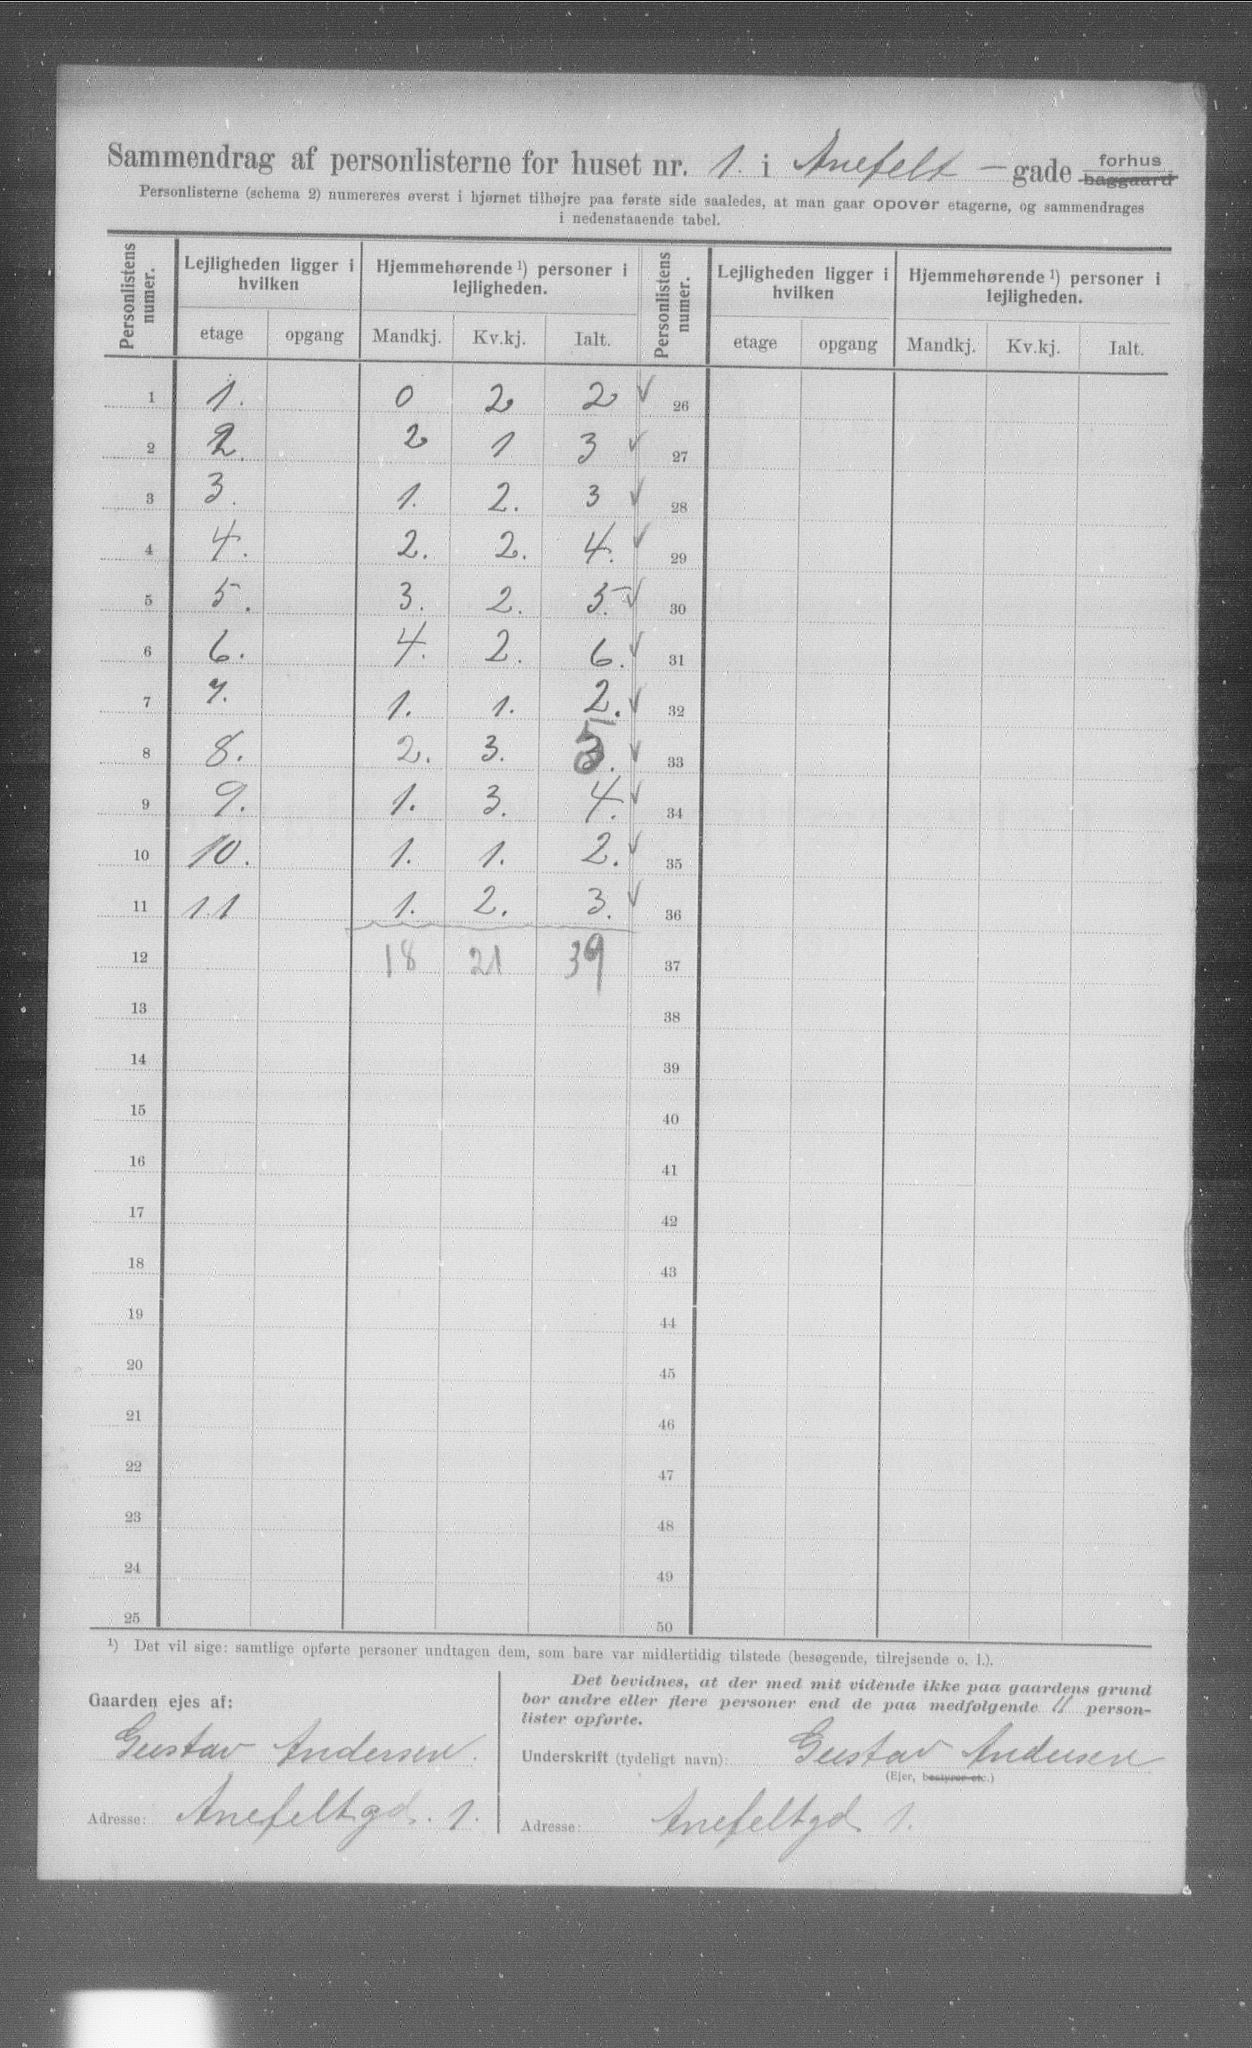 Sammendrag af personlisterne for huset nr. 1. i Anefelt - gade forhus baggaard
Personlisterne (schema 2) numereres øverst i hjørnet tilhøjre paa første side saaledes, at man gaar opover etagerne, og sammendrages
i nedenstaaende tabel.
Personlistens numer. Lejligheden ligger i hvilken Hjemmehørende ¹) personer i lejligheden. Personlistens numer. Lejligheden ligger i hvilken Hjemmehørende ¹) personer i lejligheden.
etage opgang Mandkj. Kv.kj. Ialt. etage opgang Mandkj. Kv.kj. Ialt.
1 1. 0 2 2 ✓ 26
2 2. 2 1 3 ✓ 27
3 3. 1. 2. 3 ✓ 28
4 4. 2. 2. 4. ✓ 29
5 5. 3. 2. 5. ✓ 30
6 6. 4. 2. 6. ✓ 31
7 7. 1. 1. 2. ✓ 32
8 8. 2. 3. 5. ✓ 33
9 9. 1. 3. 4. ✓ 34
10 10. 1. 1. 2. ✓ 35
11 11 1. 2. 3. ✓ 36
12 18 21 39 37
13 38
14 39
15 40
16 41
17 42
18 43
19 44
20 45
21 46
22 47
23 48
24 49
25 50
¹) Det vil sige: samtlige opførte personer undtagen dem, som bare var midlertidig tilstede (besøgende, tilrejsende o. l.).
Gaarden ejes af:
Gustav Andersen.
Adresse: Anefeltgd. 1.
Det bevidnes, at der med mit vidende ikke paa gaardens grund
bor andre eller flere personer end de paa medfølgende 11 person-
lister opførte.
Underskrift (tydeligt navn): Gustav Andersen
(Ejer, bestyrer etc.)
Adresse: Anefeltgd 1.